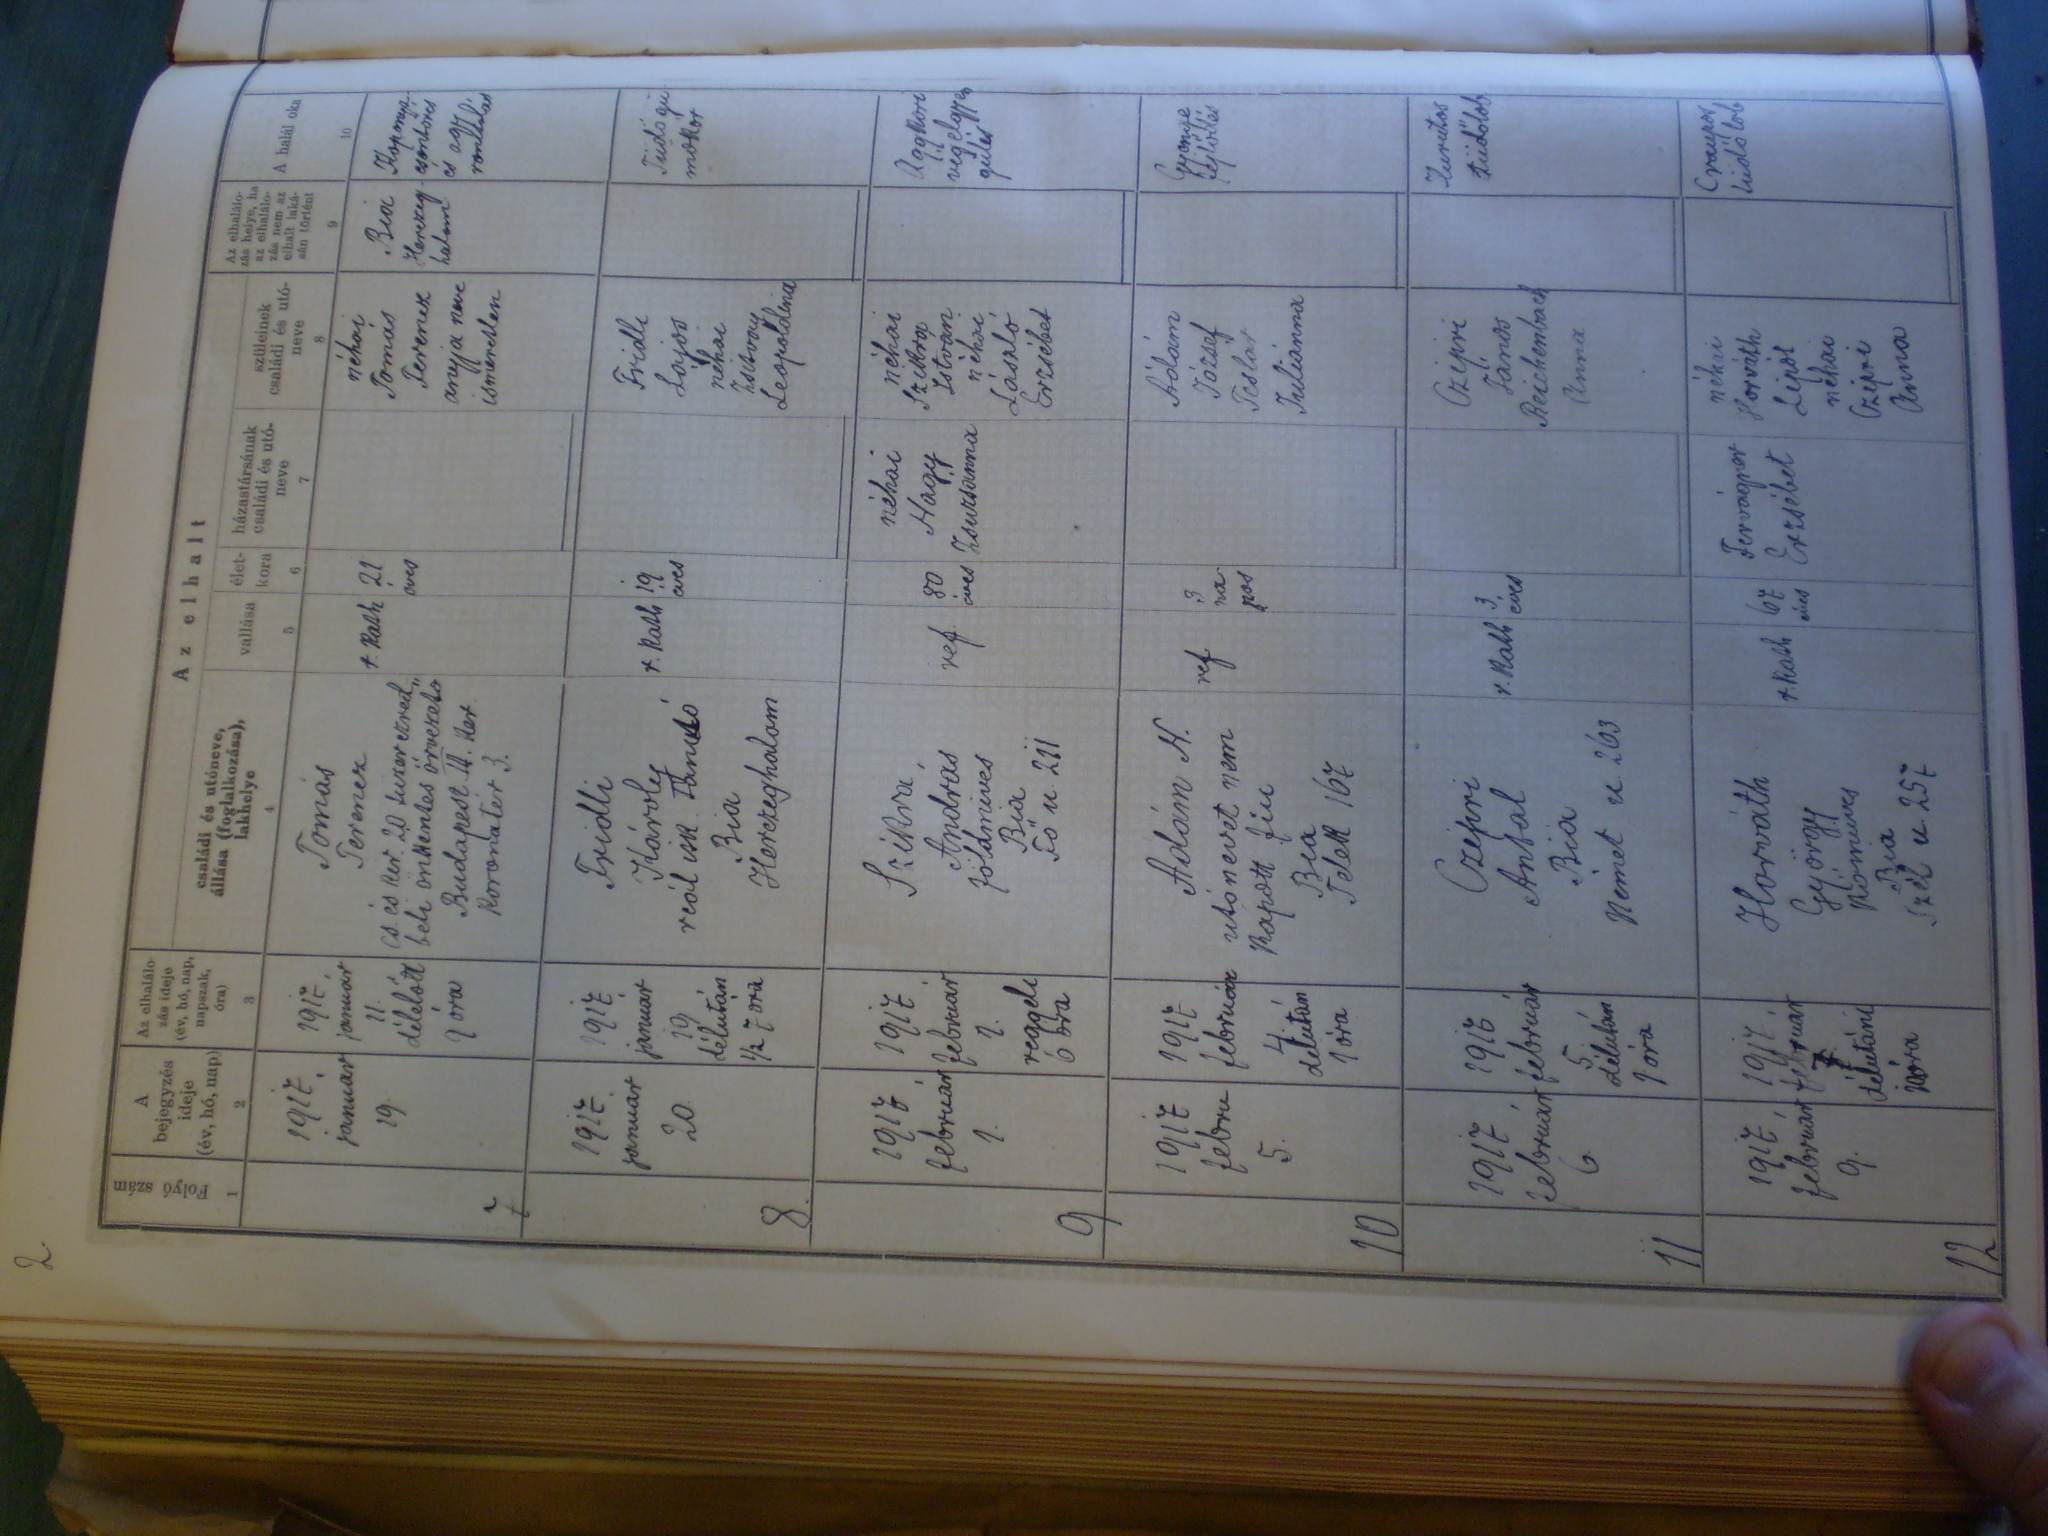 2.
Az elhalt
Folyó szám
A bejegyzés ideje (év, hó, nap)
Az elhalálo-
zás ideje
(év, hó, nap,
napszak,
óra)
családi és utóneve,
állása (foglalkozása),
lakhelye
vallása
élet-
kora
házastársának
családi és utó-
neve
szüleinek
családi és utó-
neve
Az elhalálo-
zás helye, ha
az elhalálo-
zás nem az
elhalt laká-
sán történt
A halál oka
1
2
3
4
5
6
7
8
9
10
7
1917.
január
19.
1917.
január
11.
délelőtt
9 óra
Tomás
Ferencz
cs. és kir 20
beli önkéntes őrvezető
Budapest II. ker
Koronatér 3.
r. kath
21
éves
néhai
Tomás
Ferencz
anyja neve
ismeretlen
Bia
Herczeg-
halom
Koponya-
és agy
8.
1917.
január
20.
1917
január
19
délután
1/2 7 óra
Fridli
Károly
reál isk. tanuló
Bia
Herczeghalom
r. kath
19
éves
Fridli
Lajos
néhai
Leopoldina
Tüdőgü
mőkór
9
1917
február
1.
1917
február
1.
reggeli
6 óra
Szikra
András
földmíves
Bia
Fő u. 211
ref.
80
éves
néhai
Nagy
Zsuzsánna
néhai
Szikra
István
néhai
László
Erzsébet
Aggkori
végelgyen
gülés
10
1917
febru
5.
1917
február
4.
délután
1 óra
Ádám N.
utónevet nem
kapott fiu
Bia
Telek 167
ref.
3
na
pos
Ádám
József
Juliánna
Gyönge
fejlődés
11
1917
február
6.
1917
február
5.
délután
1 óra
Czépri
Antal
Bia
Német u 263
r. kath
3
éves
Czépri
János
Reichembach
Anna
Hurutos
tüdőlob
12
1917.
február
9.
1917.
február
délutáni
óra
Horváth
György
Kőmüves
Bia
Szél u. 257
r. kath
67
éves
Erzsébet
néhai
Horváth
néhai
Czépri
Anna
Croupos
tüdőlob